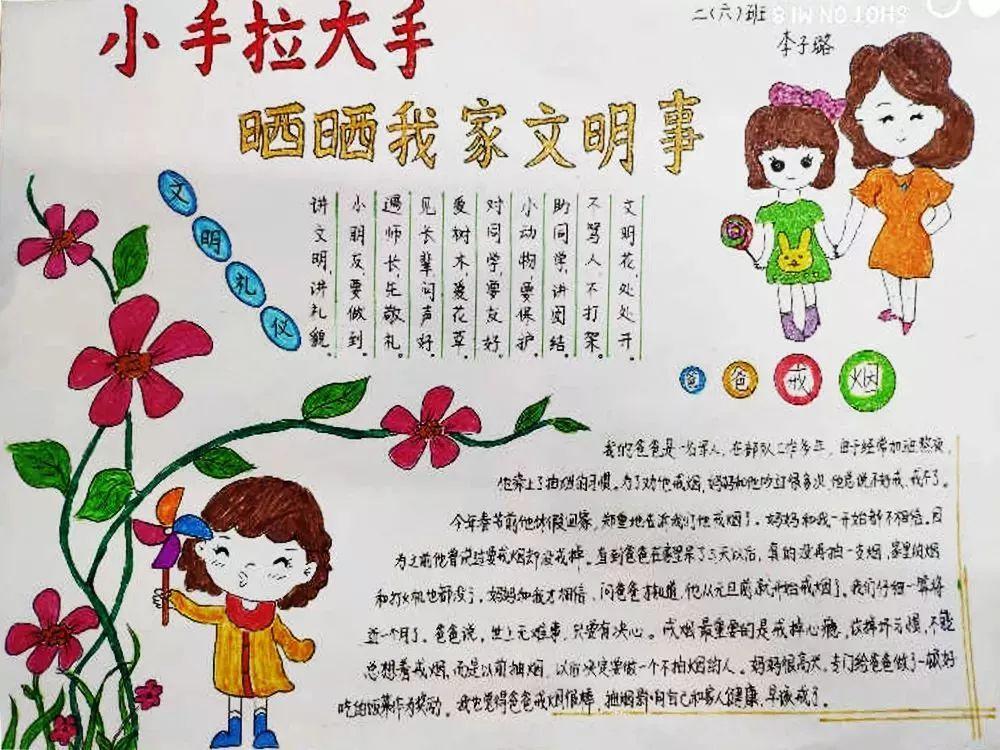 小手拉大手
晒晒我家文明事
二(六)班
李子璐
SHOT ON MI 8
文明礼仪
讲文明,讲礼貌。
小朋友,要做到。
遇师长,先敬礼。
见长辈,问声好。
爱树木,爱花草。
对同学,要友好。
小动物,要保护。
助同学,讲团结。
不骂人,不打架。
文明花,处处开。
爸爸戒烟
我的爸爸是一名军人,在部队工作多年,由于经常加班熬夜,
他染上了抽烟的习惯。为了劝他戒烟,妈妈和他吵过很多次,他总说不好戒,戒不了。
今年春节前他休假回家,郑重地告诉我们他戒烟了。妈妈和我一开始都不相信。因
为之前他曾说过要戒烟却没戒掉。直到爸爸在家里呆了三天以后,真的没再抽一支烟,家里的烟
和打火机也都没了。妈妈和我才相信,问爸爸才知道,他从元旦前就开始戒烟了。我们仔细一算将
近一个月了。爸爸说,世上无难事,只要有决心。戒烟最重要的是戒掉心瘾,改掉坏习惯,不能
总想着戒烟,而是以前抽烟,以后决定要做一个不抽烟的人。妈妈很高兴,专门给爸爸做了一顿好
吃的饭菜作为奖励。我也觉得爸爸戒烟很棒,抽烟影响自己和家人健康,早该戒了。